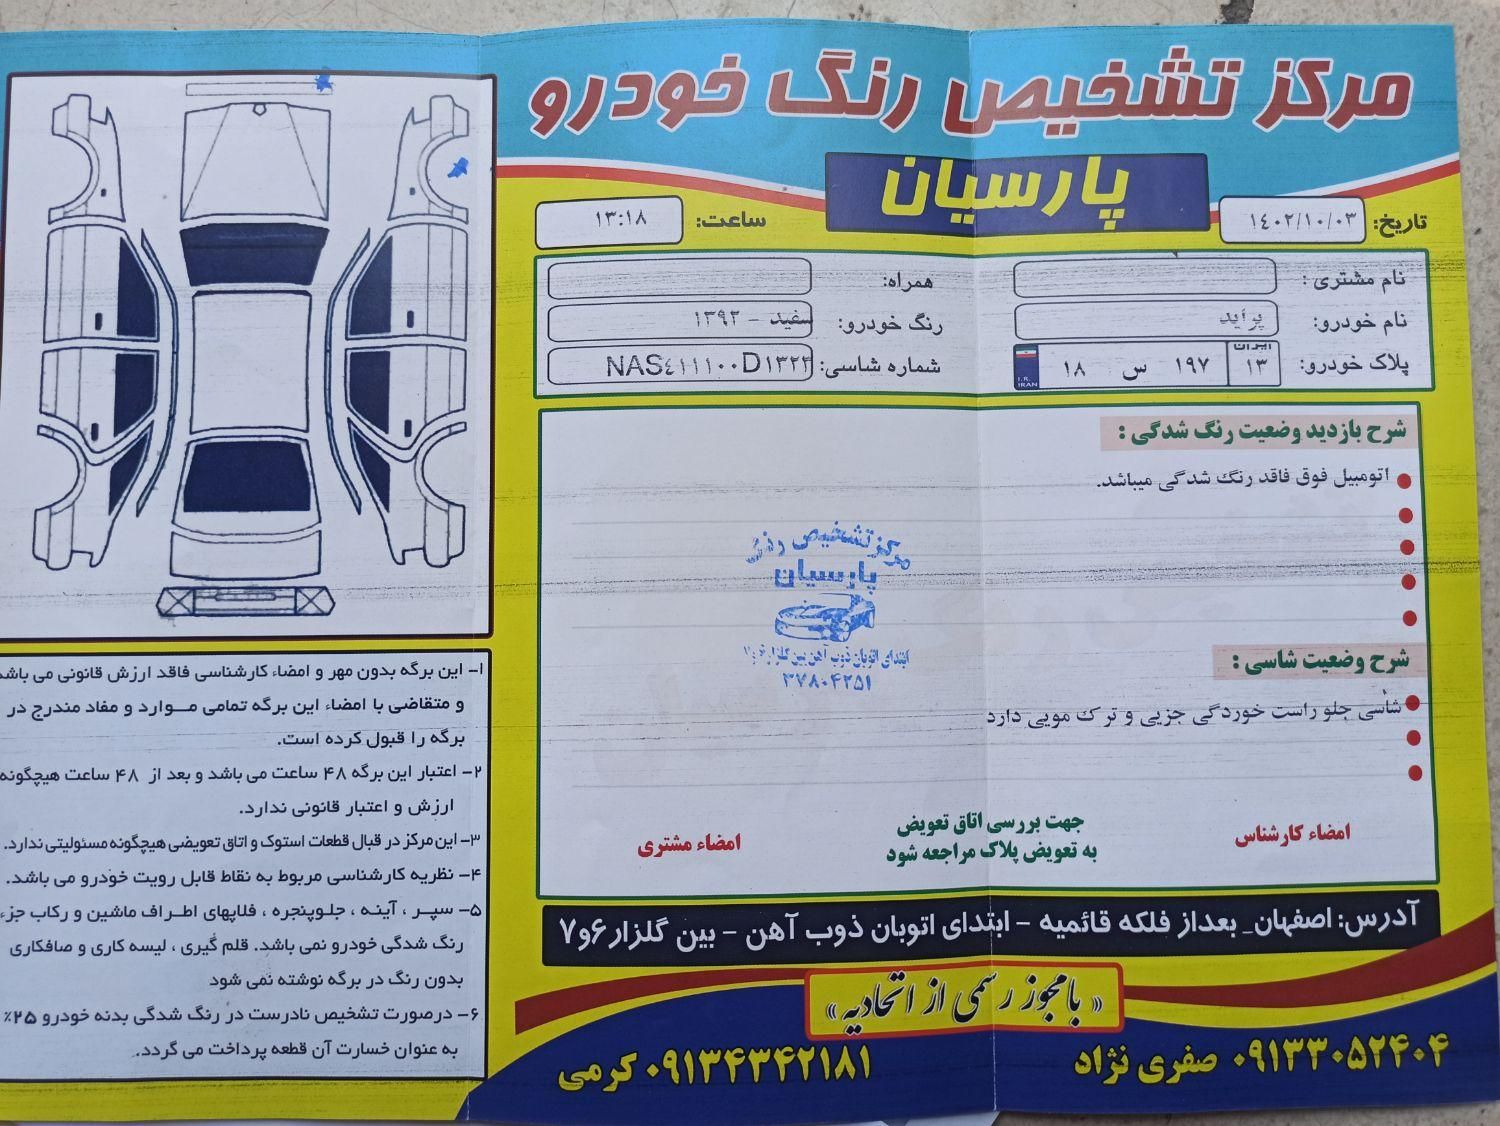 مرکز تشخیص رنگ خودرو
پارسیان
تاریخ: ۱۴۰۲/۱۰/۰۳
ساعت: ۱۳:۱۸
نام مشتری :
همراه:
نام خودرو: پراید
رنگ خودرو: سفید - ۱۳۹۲
پلاک خودرو: ایران ۱۳ ۱۹۷ س ۱۸
I.R. IRAN
شماره شاسی: NAS۴۱۱۱۰۰D۱۳۲۲
شرح بازدید وضعیت رنگ شدگی :
اتومبیل فوق فاقد رنگ شدگی میباشد.
مرکز تشخیص رنگ
پارسیان
ابتدای اتوبان ذوب آهن بین گلزار ۶ و ۷
۳۷۸۰۴۲۵۱
شرح وضعیت شاسی :
شاسی جلو راست خوردگی جزیی و ترک مویی دارد
امضاء کارشناس
جهت بررسی اتاق تعویض
به تعویض پلاک مراجعه شود
امضاء مشتری
آدرس: اصفهان_ بعداز فلکه قائمیه - ابتدای اتوبان ذوب آهن - بین گلزار ۶و۷
«بامجوز رسمی از اتحادیه»
۰۹۱۳۳۰۵۲۴۰۴ صفری نژاد
۰۹۱۳۴۳۴۲۱۸۱ کرمی
۱- این برگه بدون مهر و امضاء کارشناسی فاقد ارزش قانونی می باشد
و متقاضی با امضاء این برگه تمامی موارد و مفاد مندرج در
برگه را قبول کرده است.
۲- اعتبار این برگه ۴۸ ساعت می باشد و بعد از ۴۸ ساعت هیچگونه
ارزش و اعتبار قانونی ندارد.
۳- این مرکز در قبال قطعات استوک و اتاق تعویضی هیچگونه مسئولیتی ندارد.
۴- نظریه کارشناسی مربوط به نقاط قابل رویت خودرو می باشد.
۵- سپر ، آینه ، جلوپنجره ، فلاپهای اطراف ماشین و رکاب جزء
رنگ شدگی خودرو نمی باشد. قلم گیری ، لیسه کاری و صافکاری
بدون رنگ در برگه نوشته نمی شود
۶- درصورت تشخیص نادرست در رنگ شدگی بدنه خودرو ۲۵٪
به عنوان خسارت آن قطعه پرداخت می گردد.